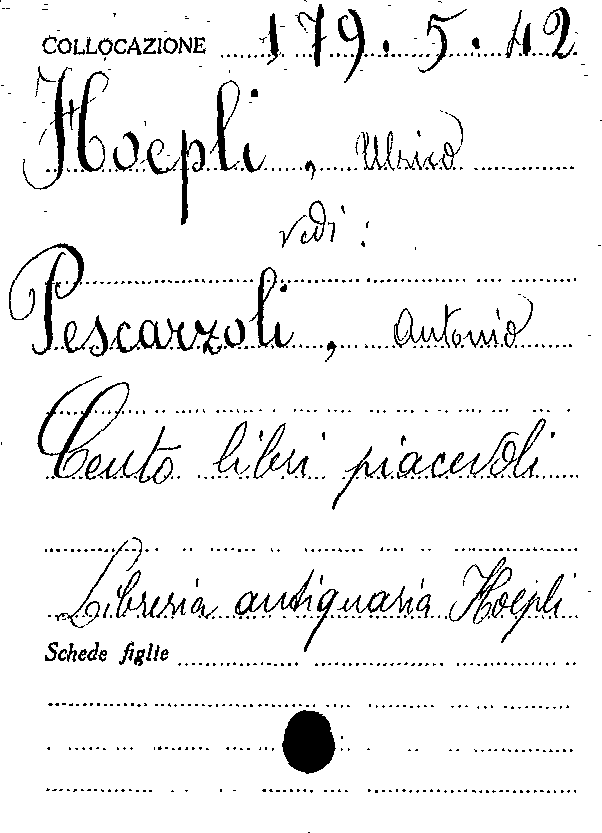 COLLOCAZIONE 179.5.42
Hoepli, Ulrico
vedi:
Pescarzoli, Antonio
Cento libri piacevoli
Libreria antiquaria Hoepli
Schede figlie